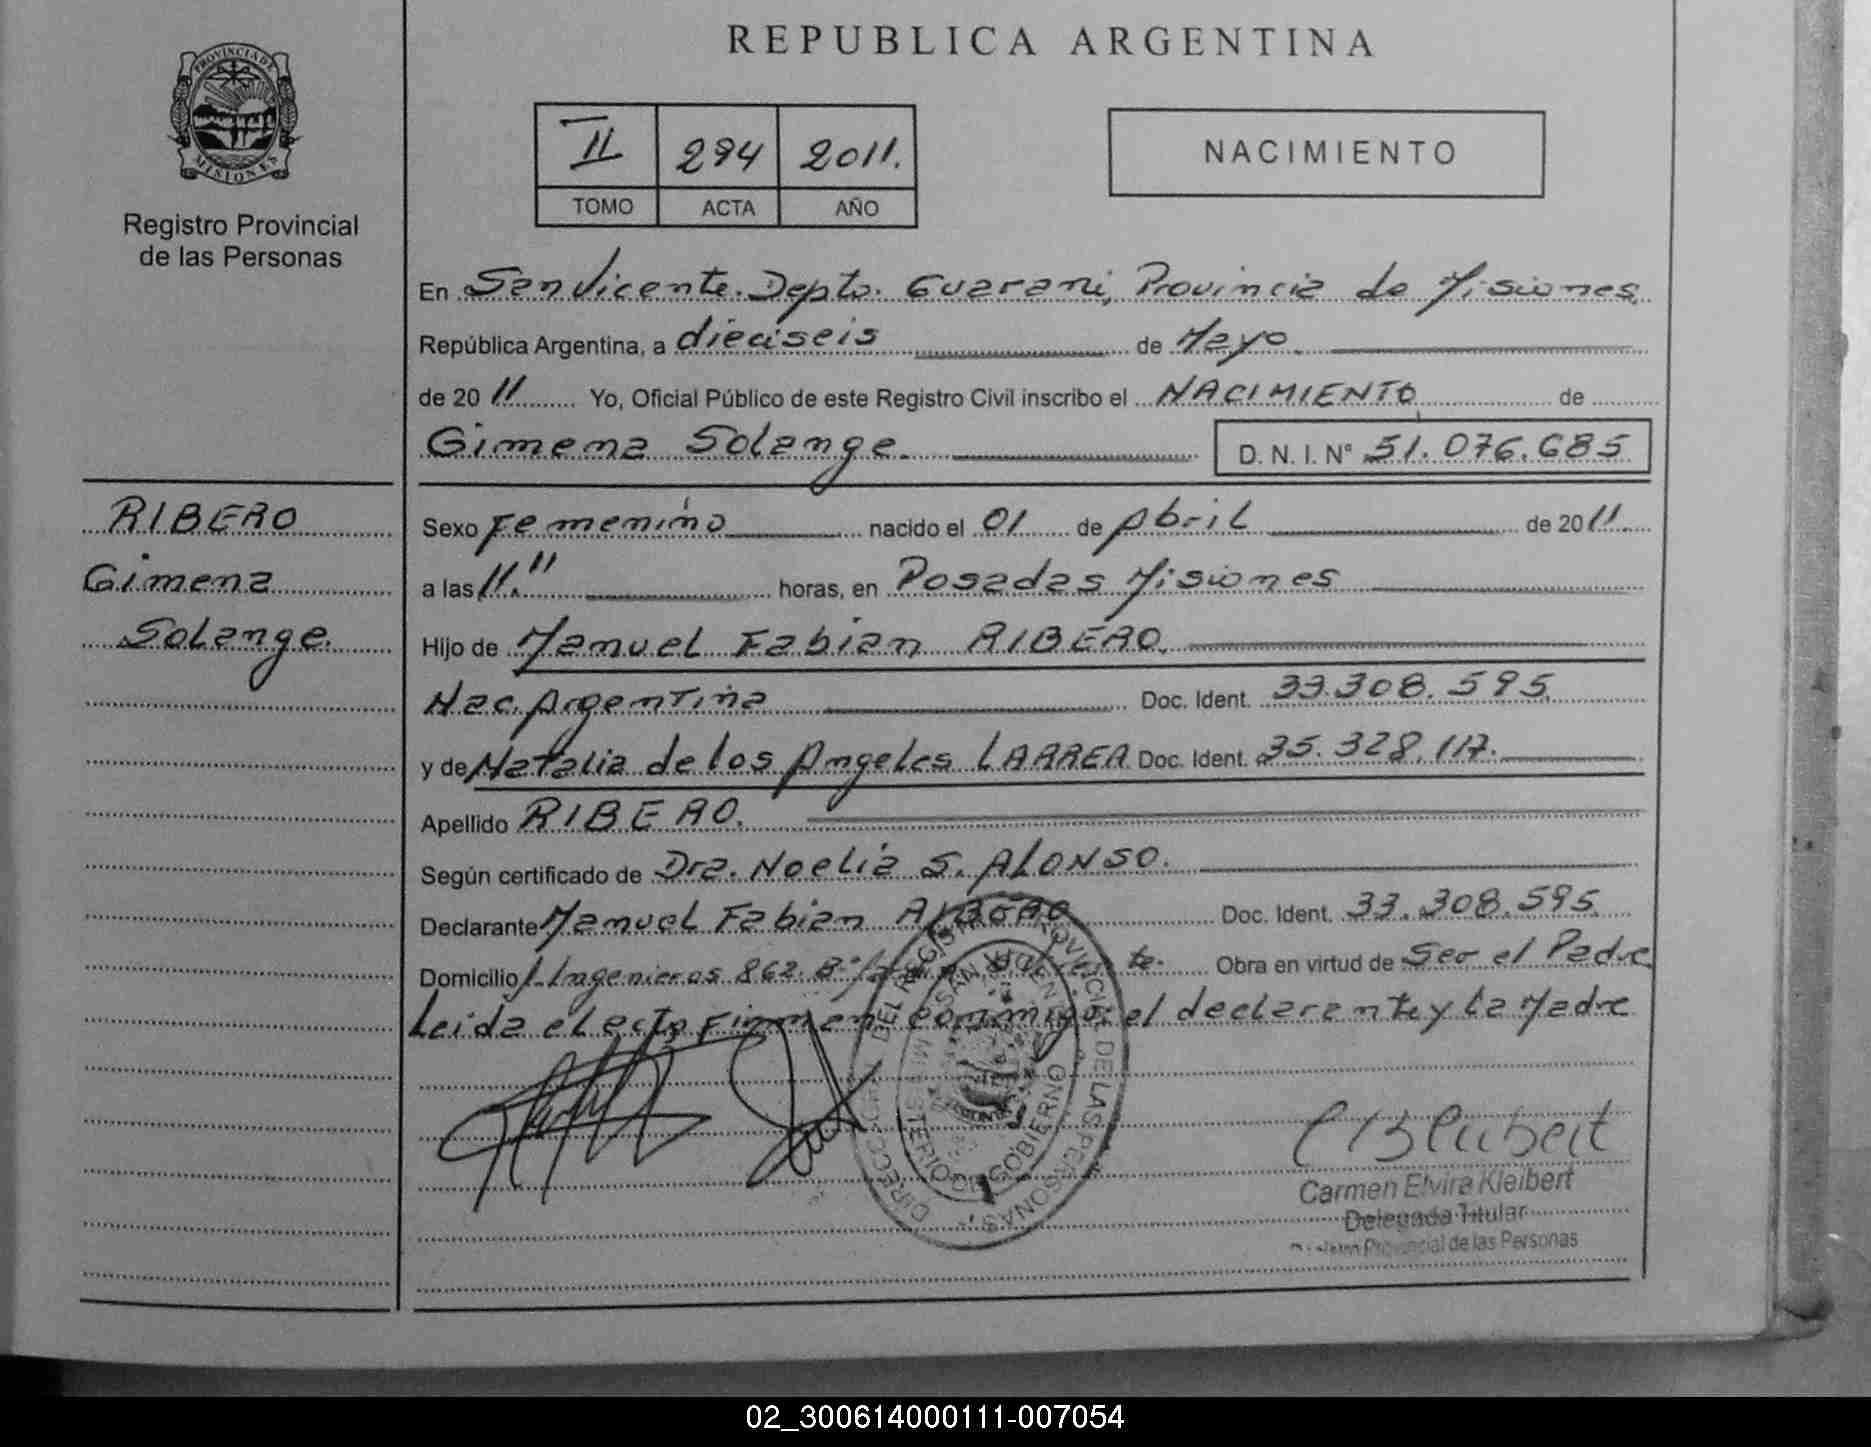 REPUBLICA ARGENTINA
PROVINCIA DE
MISIONES
Registro Provincial
de las Personas
II 294 2011.
TOMO ACTA AÑO
NACIMIENTO
En San Vicente. Depto. Guarani, Provincia de Misiones
República Argentina, a dieciseis de Mayo
de 20 11 Yo, Oficial Público de este Registro Civil inscribo el NACIMIENTO de
Gimena Solange. D. N. I. Nº 51.076.685
RIBERO
Gimena
Solange.
Sexo Femenino nacido el 01 de Abril de 20 11
a las 11." horas, en Posadas Misiones
Hijo de Manuel Fabian RIBERO.
Nac. Argentina Doc. Ident. 33.308.595
y de Natalia de los Angeles LARREA Doc. Ident. 35.328.117.
Apellido RIBERO.
Según certificado de Dra. Noelia S. ALONSO.
Declarante Manuel Fabian RIBERO Doc. Ident. 33.308.595
Domicilio Ingenieros 862. Bº Obra en virtud de Ser el Padre
Leida el acta Firman conmigo: el declarante y La Madre
DEL REGISTRO PROVINCIAL DE LAS PERSONAS
SAN VICENTE
MINISTERIO DE GOBIERNO
Carmen Elvira Kleibert
Delegada Titular
Provincial de las Personas
02_300614000111-007054